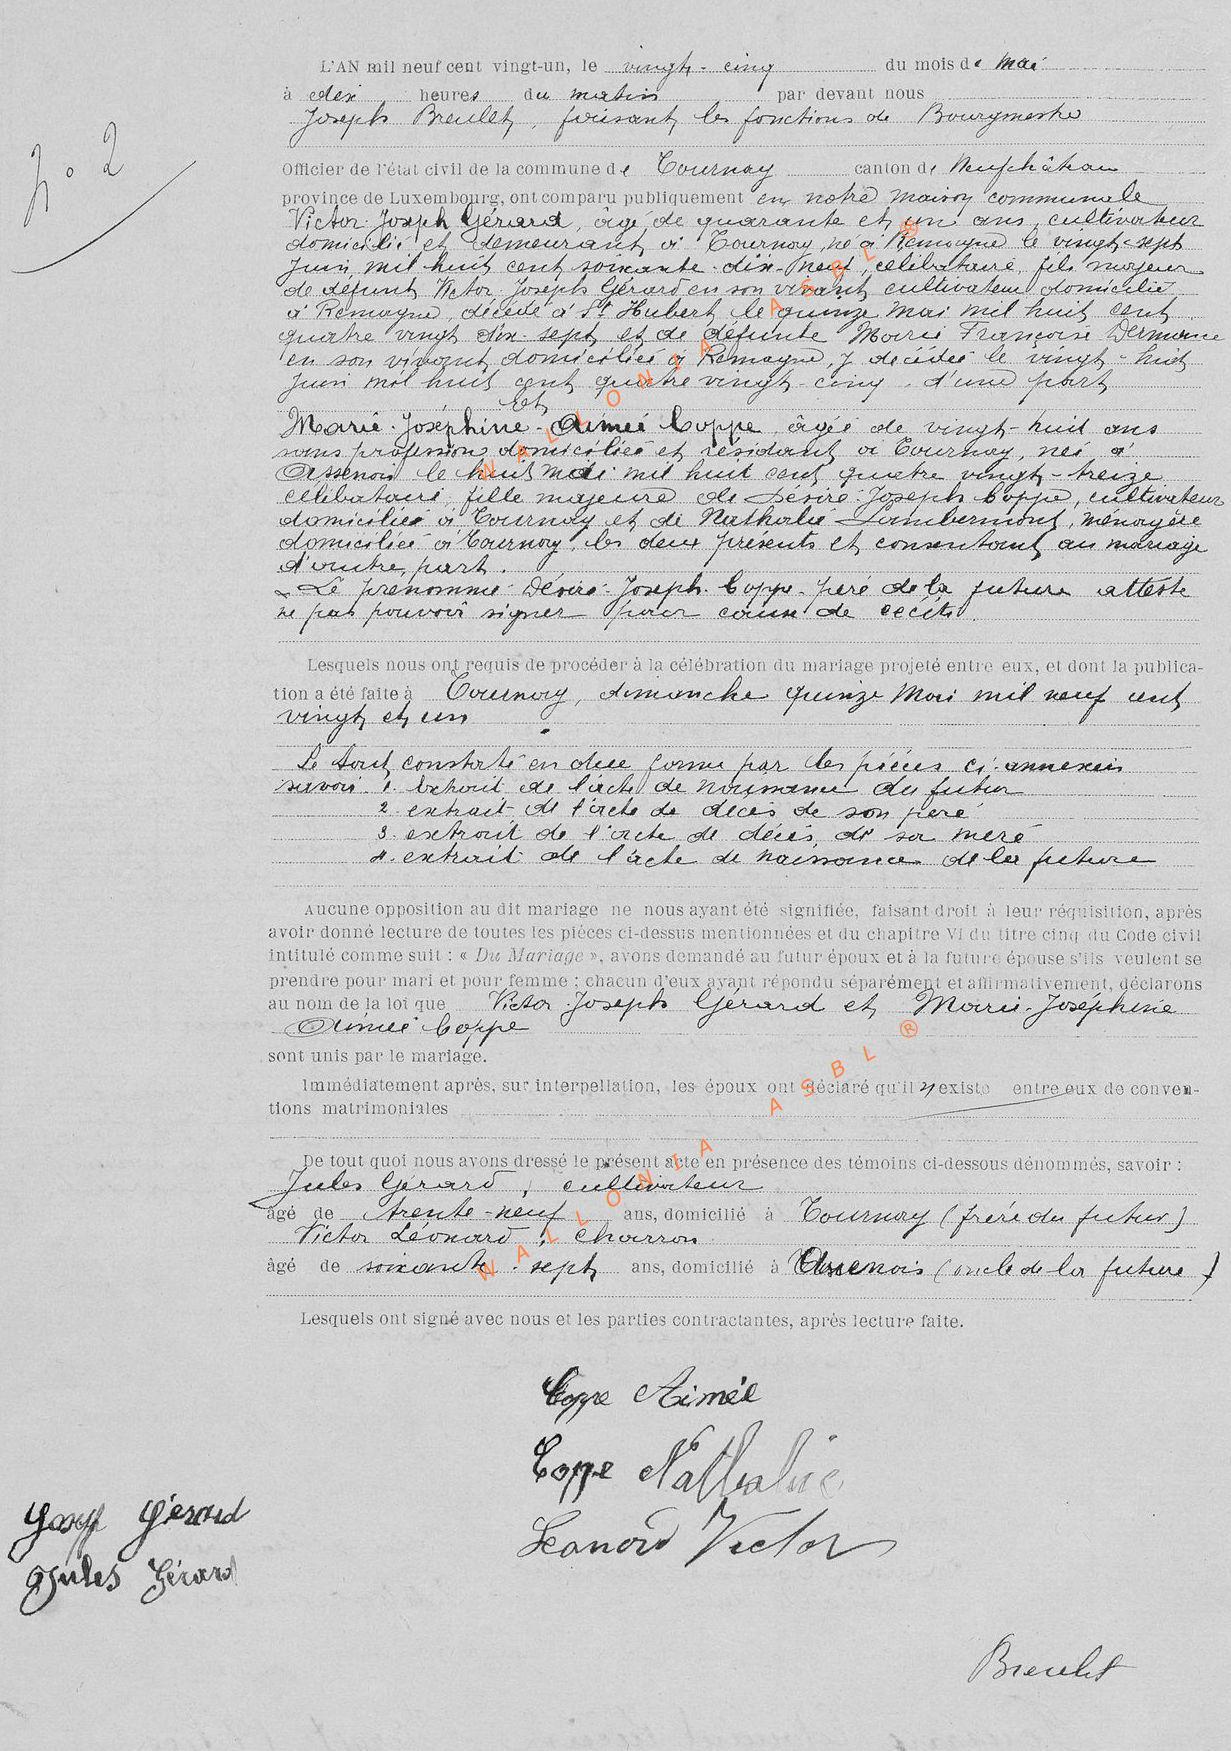 N° 2
L'AN mil neuf cent vingt-un, le vingt-cinq du mois de Mai
à dix heures du matin par devant nous
Joseph Breulet, faisant les fonctions de Bourgmestre
Officier de l'état civil de la commune de Tournay canton de Neufchâteau
province de Luxembourg, ont comparu publiquement en notre maison communale
Victor-Joseph Gérard, âgé de quarante et un ans, cultivateur
domicilié et demeurant à Tournay, né à Remagne le vingt-sept
Juin mil huit cent soixante-dix-neuf, célibataire, fils majeur
de défunt Victor-Joseph Gérard en son vivant cultivateur domicilié
à Remagne, décédé à St Hubert le quinze Mai mil huit cent
quatre vingt dix-sept et de défunte Marie Françoise Dermience
en son vivant domiciliée à Remagne, y décédée le vingt-huit
Juin mil huit cent quatre vingt-cinq, d'une part
Et
Marie-Joséphine-Aimée Coppe âgée de vingt-huit ans
sans profession domiciliée et résidant à Tournay, née à
Assenois le huit Mai mil huit cent quatre vingt-treize
célibataire, fille majeure de Désiré-Joseph Coppe, cultivateur
domicilié à Tournay et de Nathalie Lambermont, ménagère
domiciliée à Tournay, les deux présents et consentant au mariage
d'autre part.
Le prénommé Désiré-Joseph Coppe père de la future atteste
ne pas pouvoir signer pour cause de cécité.
Lesquels nous ont requis de procéder à la célébration du mariage projeté entre eux, et dont la publica-
tion a été faite à Tournay, dimanche quinze Mai mil neuf cent
vingt et un
Le tout constaté en due forme par les pièces ci-annexées
savoir 1. Extrait de l'acte de naissance du futur
2. extrait de l'acte de décès de son père
3. extrait de l'acte de décès de sa mère
4. extrait de l'acte de naissance de la future
Aucune opposition au dit mariage ne nous ayant été signifiée, faisant droit à leur réquisition, après
avoir donné lecture de toutes les pièces ci-dessus mentionnées et du chapitre VI du titre cinq du Code civil
intitulé comme suit : « Du Mariage », avons demandé au futur époux et à la future épouse s'ils veulent se
prendre pour mari et pour femme ; chacun d'eux ayant répondu séparément et affirmativement, déclarons
au nom de la loi que Victor-Joseph Gérard et Marie-Joséphine
Aimée Coppe
sont unis par le mariage.
Immédiatement après, sur interpellation, les époux ont déclaré qu'il n'existe entre eux de conven-
tions matrimoniales
De tout quoi nous avons dressé le présent acte en présence des témoins ci-dessous dénommés, savoir :
Jules Gérard, cultivateur
âgé de trente-neuf ans, domicilié à Tournay (frère du futur)
Victor Léonard, charron
âgé de soixante-sept ans, domicilié à Assenois (oncle de la future)
Lesquels ont signé avec nous et les parties contractantes, après lecture faite.
Coppe Aimée
Coppe Nathalie
Léonard Victor
Josep Gérard
Jules Gérard
Breulet
WALLONIA ASBL ®
WALLONIA ASBL ®